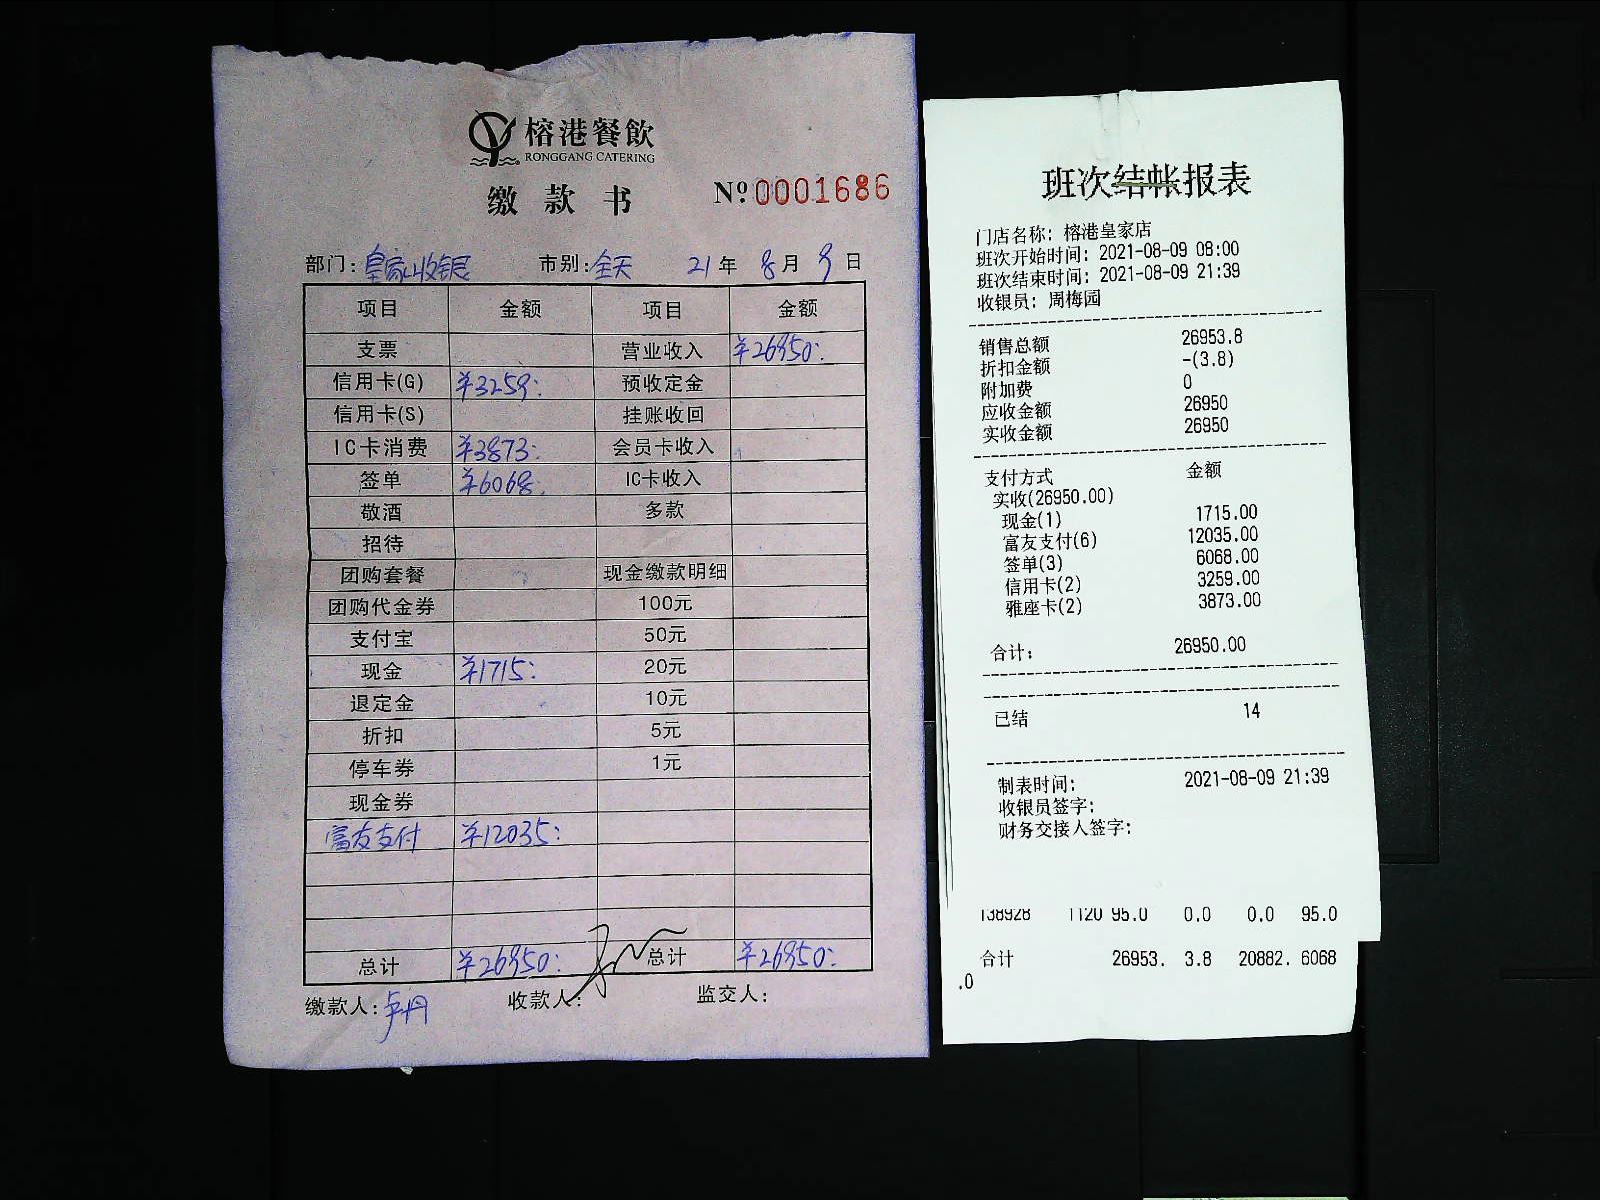 榕港餐飲
RONGGANG CATERING
缴款书 Nº 0001686
部门：皇家收银 市别：全天 21年8月9日
项目 金额 项目 金额
支票 营业收入 ¥26950
信用卡(G) ¥3259 预收定金
信用卡(S) 挂账收回
IC卡消费 ¥3873 会员卡收入
签单 ¥6068 IC卡收入
敬酒 多款
招待
团购套餐 现金缴款明细
团购代金券 100元
支付宝 50元
现金 ¥1715 20元
退定金 10元
折扣 5元
停车券 1元
现金券
富友支付 ¥12035
总计 ¥26950 总计 ¥26950
缴款人：卢丹 收款人： 监交人：
班次结帐报表
门店名称：榕港皇家店
班次开始时间：2021-08-09 08:00
班次结束时间：2021-08-09 21:39
收银员：周梅园
销售总额 26953.8
折扣金额 -(3.8)
附加费 0
应收金额 26950
实收金额 26950
支付方式 金额
实收(26950.00)
现金(1) 1715.00
富友支付(6) 12035.00
签单(3) 6068.00
信用卡(2) 3259.00
雅座卡(2) 3873.00
合计： 26950.00
已结 14
制表时间： 2021-08-09 21:39
收银员签字：
财务交接人签字：
138928 1120 95.0 0.0 0.0 95.0
合计 26953. 3.8 20882. 6068
.0